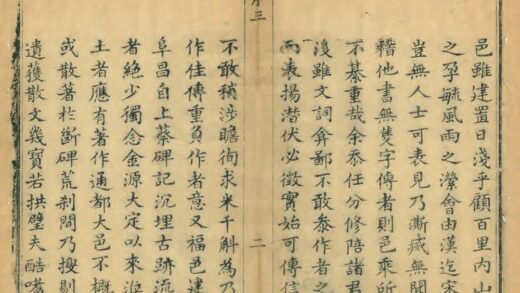 邑雖建置日淺乎顧百里内山
之孕毓風雨之瀠會由漢迄宋
豈無人士可表見乃澌滅無聞
稽他書無隻字傳者則邑乘所
不綦重哉余忝任分修陪諸君
後雖文詞弇鄙不敢忝作者之
而表揚潛伏必徵實始可傳信
序三
二
不敢稍涉瞻徇求米千斛為乃
作佳傳重負作者意又福邑建
阜昌自上蔡碑記沉埋古跡流
者絶少獨念金源大定以來
土者應有著作通都大邑不概
或散著於斷碑荒刹間乃搜剔
遺獲散文幾寳若拱璧夫酷嗜